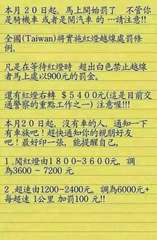 本月20日起,馬上開始罰了 不管你
是騎機車 或者是開汽車 的一請注意!!
全國(Taiwan)將實施紅燈越線處罰條
例。
凡是在等待紅燈時 超出白色禁止越線
者馬上處x$900元的罰金。
還有紅燈右轉 $5400元(這是目前交
通警察的重點工作之一) 注意喔!!!
本月20日起,沒有車的人,通知一下
有車族吧!趕快通知你的親朋好友
吧!最好印一張,能提醒自己,
1.闖紅燈由1800-3600元, 調
為3600 - 7200 元
2.超速由1200-2400元, 調為6000元+
每超速 1公里 加罰100 元!!